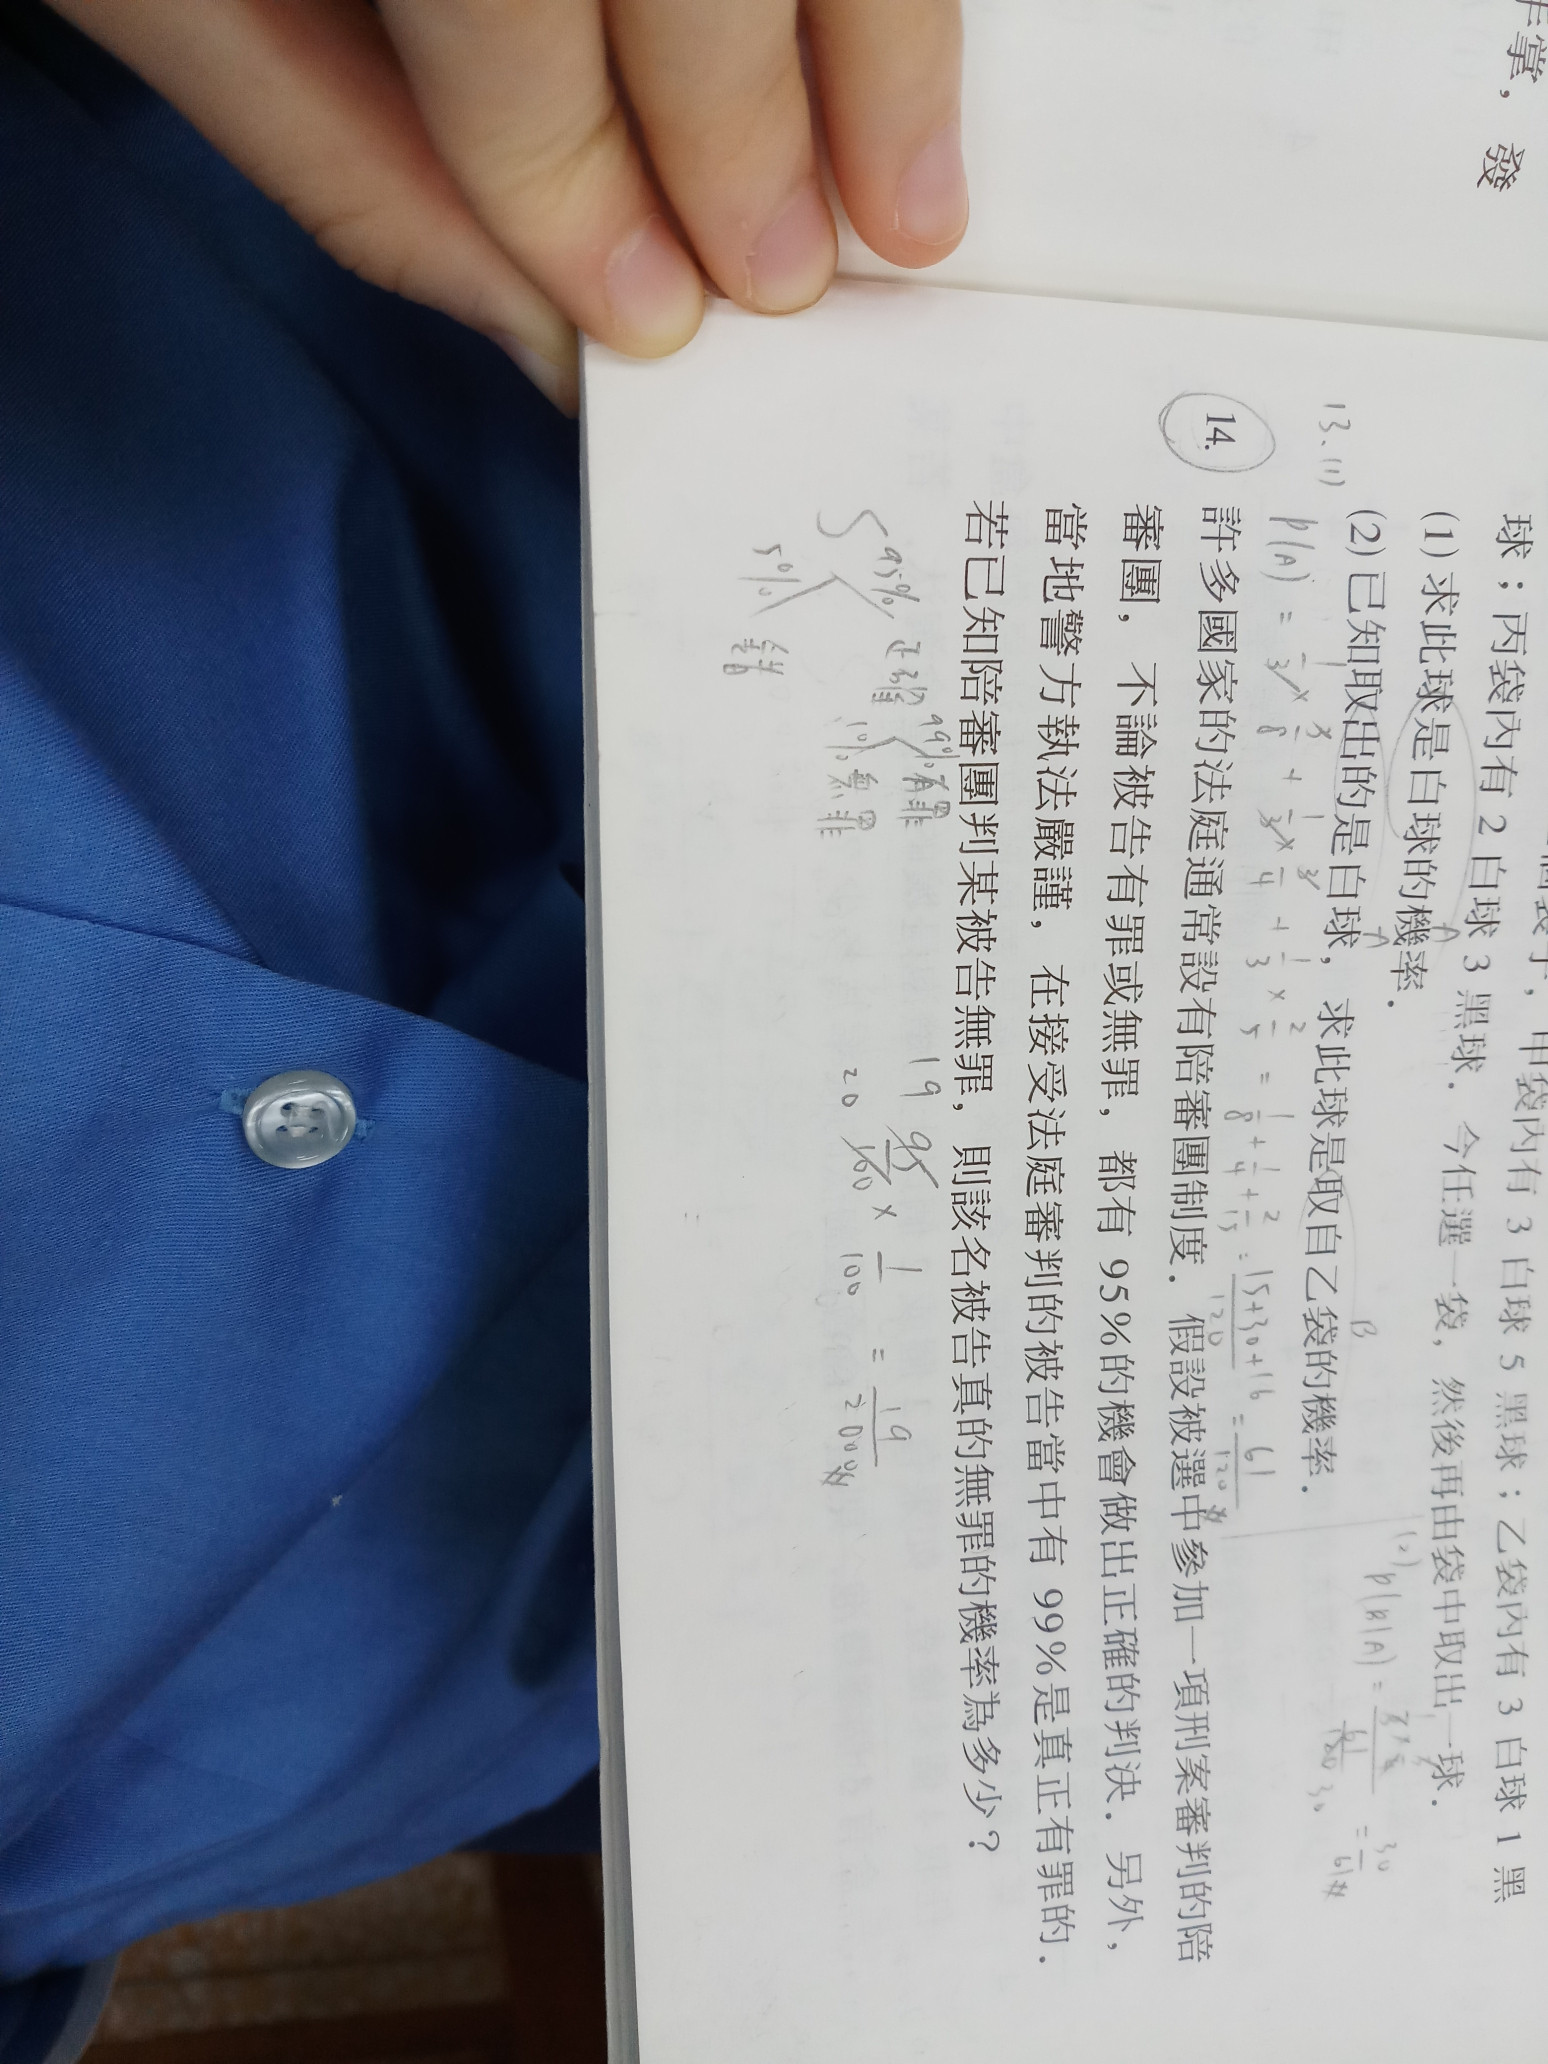 作掌，發
個袋子，甲袋內有 3 白球 5 黑球；乙袋內有 3 白球 1 黑
球；丙袋內有 2 白球 3 黑球．今任選一袋，然後再由袋中取出一球．
(1) 求此球是白球的機率．
A
(2) 已知取出的是白球，求此球是取自乙袋的機率．
A B
13.(1)
P(A) = 1/3 × 3/8 + 1/3 × 3/4 + 1/3 × 2/5 = 1/8 + 1/4 + 2/15 = 15+30+16/120 = 61/120 #
(2) P(B|A) = = 30/61 #
14. 許多國家的法庭通常設有陪審團制度．假設被選中參加一項刑案審判的陪
審團，不論被告有罪或無罪，都有 95%的機會做出正確的判決．另外，
當地警方執法嚴謹，在接受法庭審判的被告當中有 99%是真正有罪的．
若已知陪審團判某被告無罪，則該名被告真的無罪的機率為多少？
S 95% 正確 99% 有罪
1% 無罪
5% 錯
19 95/100 20 × 1/100 = 19/2000 #